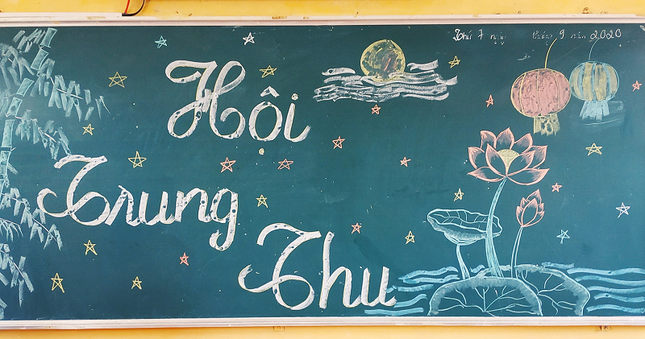 Thứ 7 ngày tháng 9 năm 2020
Hội
Trung
Thu